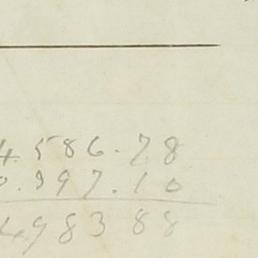 4586.78
0.397.10
498388